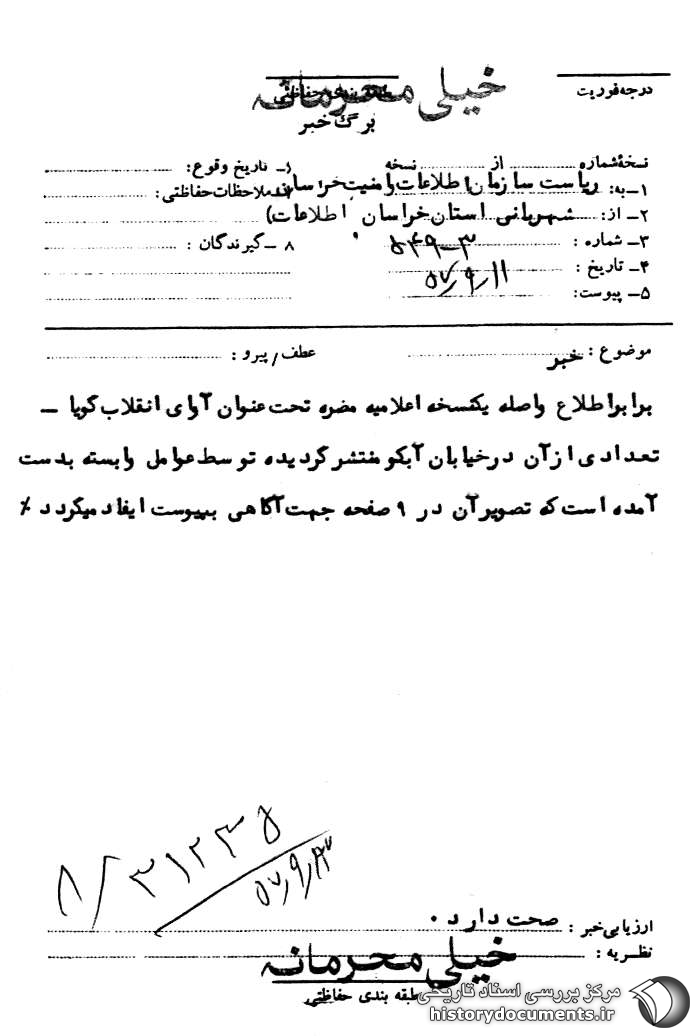 درجه فوریت
خیلی محرمانه
طبقه بندی حفاظتی
برگ خبر
نسخهٔ شماره ........ از ........ نسخه
۱ـ به: ریاست سازمان اطلاعات و امنیت خراسان
۲ـ از: شهربانی استان خراسان (اطلاعات)
۳ـ شماره : ۳ـ۵۴۹
۴ـ تاریخ : ۵۷٫۹٫۱۱
۵ـ پیوست:
۶ـ تاریخ وقوع:
ملاحظات حفاظتی:
۸ ـ گیرندگان :
موضوع : خبر
عطف/پیرو :
برابر اطلاع واصله یکنسخه اعلامیه مضره تحت عنوان آوای انقلاب گویا ـ
تعدادی از آن در خیابان آبکو منتشر گردیده توسط عوامل وابسته بدست
آمده است که تصویر آن در ۹ صفحه جهت آگاهی بپیوست ایفاد میگردد ٪
۸/۳۱۲۳۵
ارزیابی خبر : صحت دارد ۰
نظریه :
خیلی محرمانه
طبقه بندی حفاظتی
مرکز بررسی اسناد تاریخی
historydocuments.ir